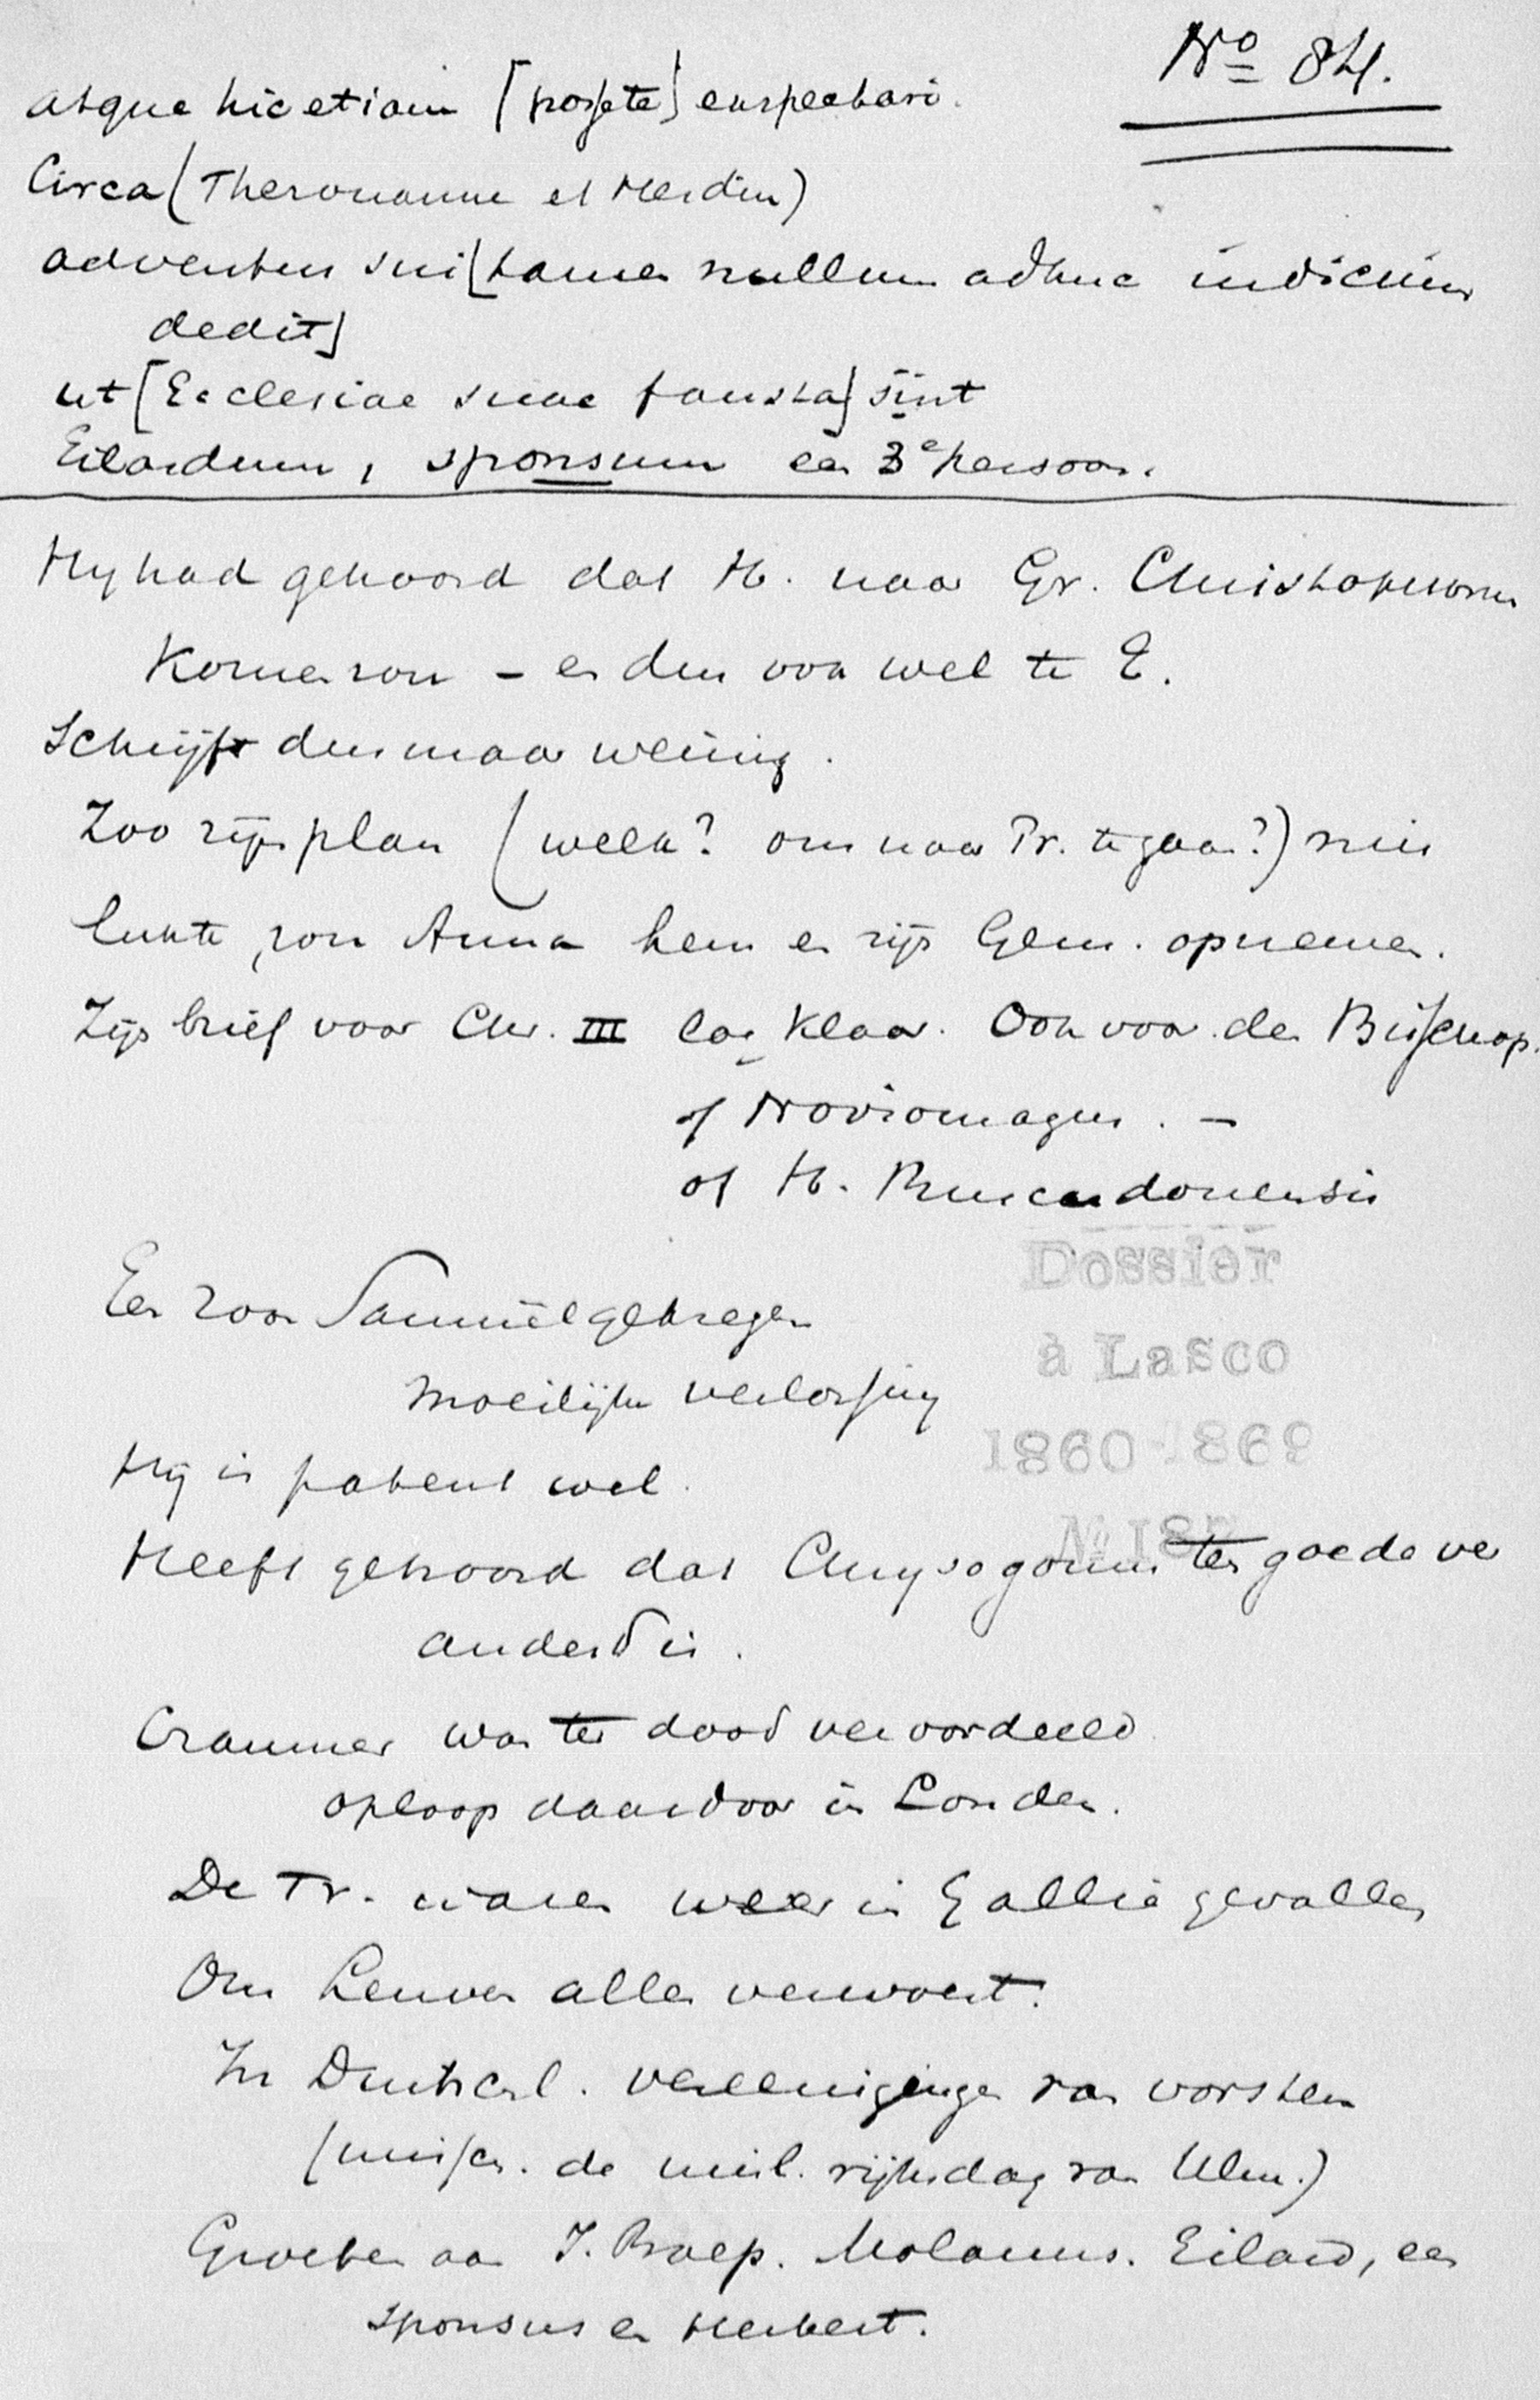 No 84.
atque hic etiam [possete] exspectari.
Circa (Therouanne et Hesdin)
adventus sui [tamen nullum adhuc indicium
dedit]
ut [Ecclesiae suae fausta] sint
Eilardum, sponsum en 3e persoon.
Hij had gehoord dat H. naar Gr. Christophorum
komen zou – en dus ook wel te E.
Schrijft dus maar weinig.
Zoo zijn plan (welk? om naar Pr. te gaan?) niet
lukte, zou Anna hem en zijn Gem. opnemen.
Zijn brief voor Chr. III lag klaar. Ook voor den Bisschop.
of Noviomagus. –
of H. Buscodonensis
Dossier
à Lasco
1860-1869
No 18
Een zoon Samuël gekregen
moeilijke verlossing
Hij is patent wel.
Heeft gehoord dat Chrysogonus ten goede ver
anderd is.
Cranmer was ter dood veroordeeld
oploop daardoor in Londen.
De Tr. waren weer in Gallië gevallen
Om Leuven alles verwoest.
In Duitschl. vereenigingen van vorsten
(missch. de misl. rijksdag van Ulm.)
Groeten aan J. Praep. Molanus. Eilard, en
sponsus en Herbert.